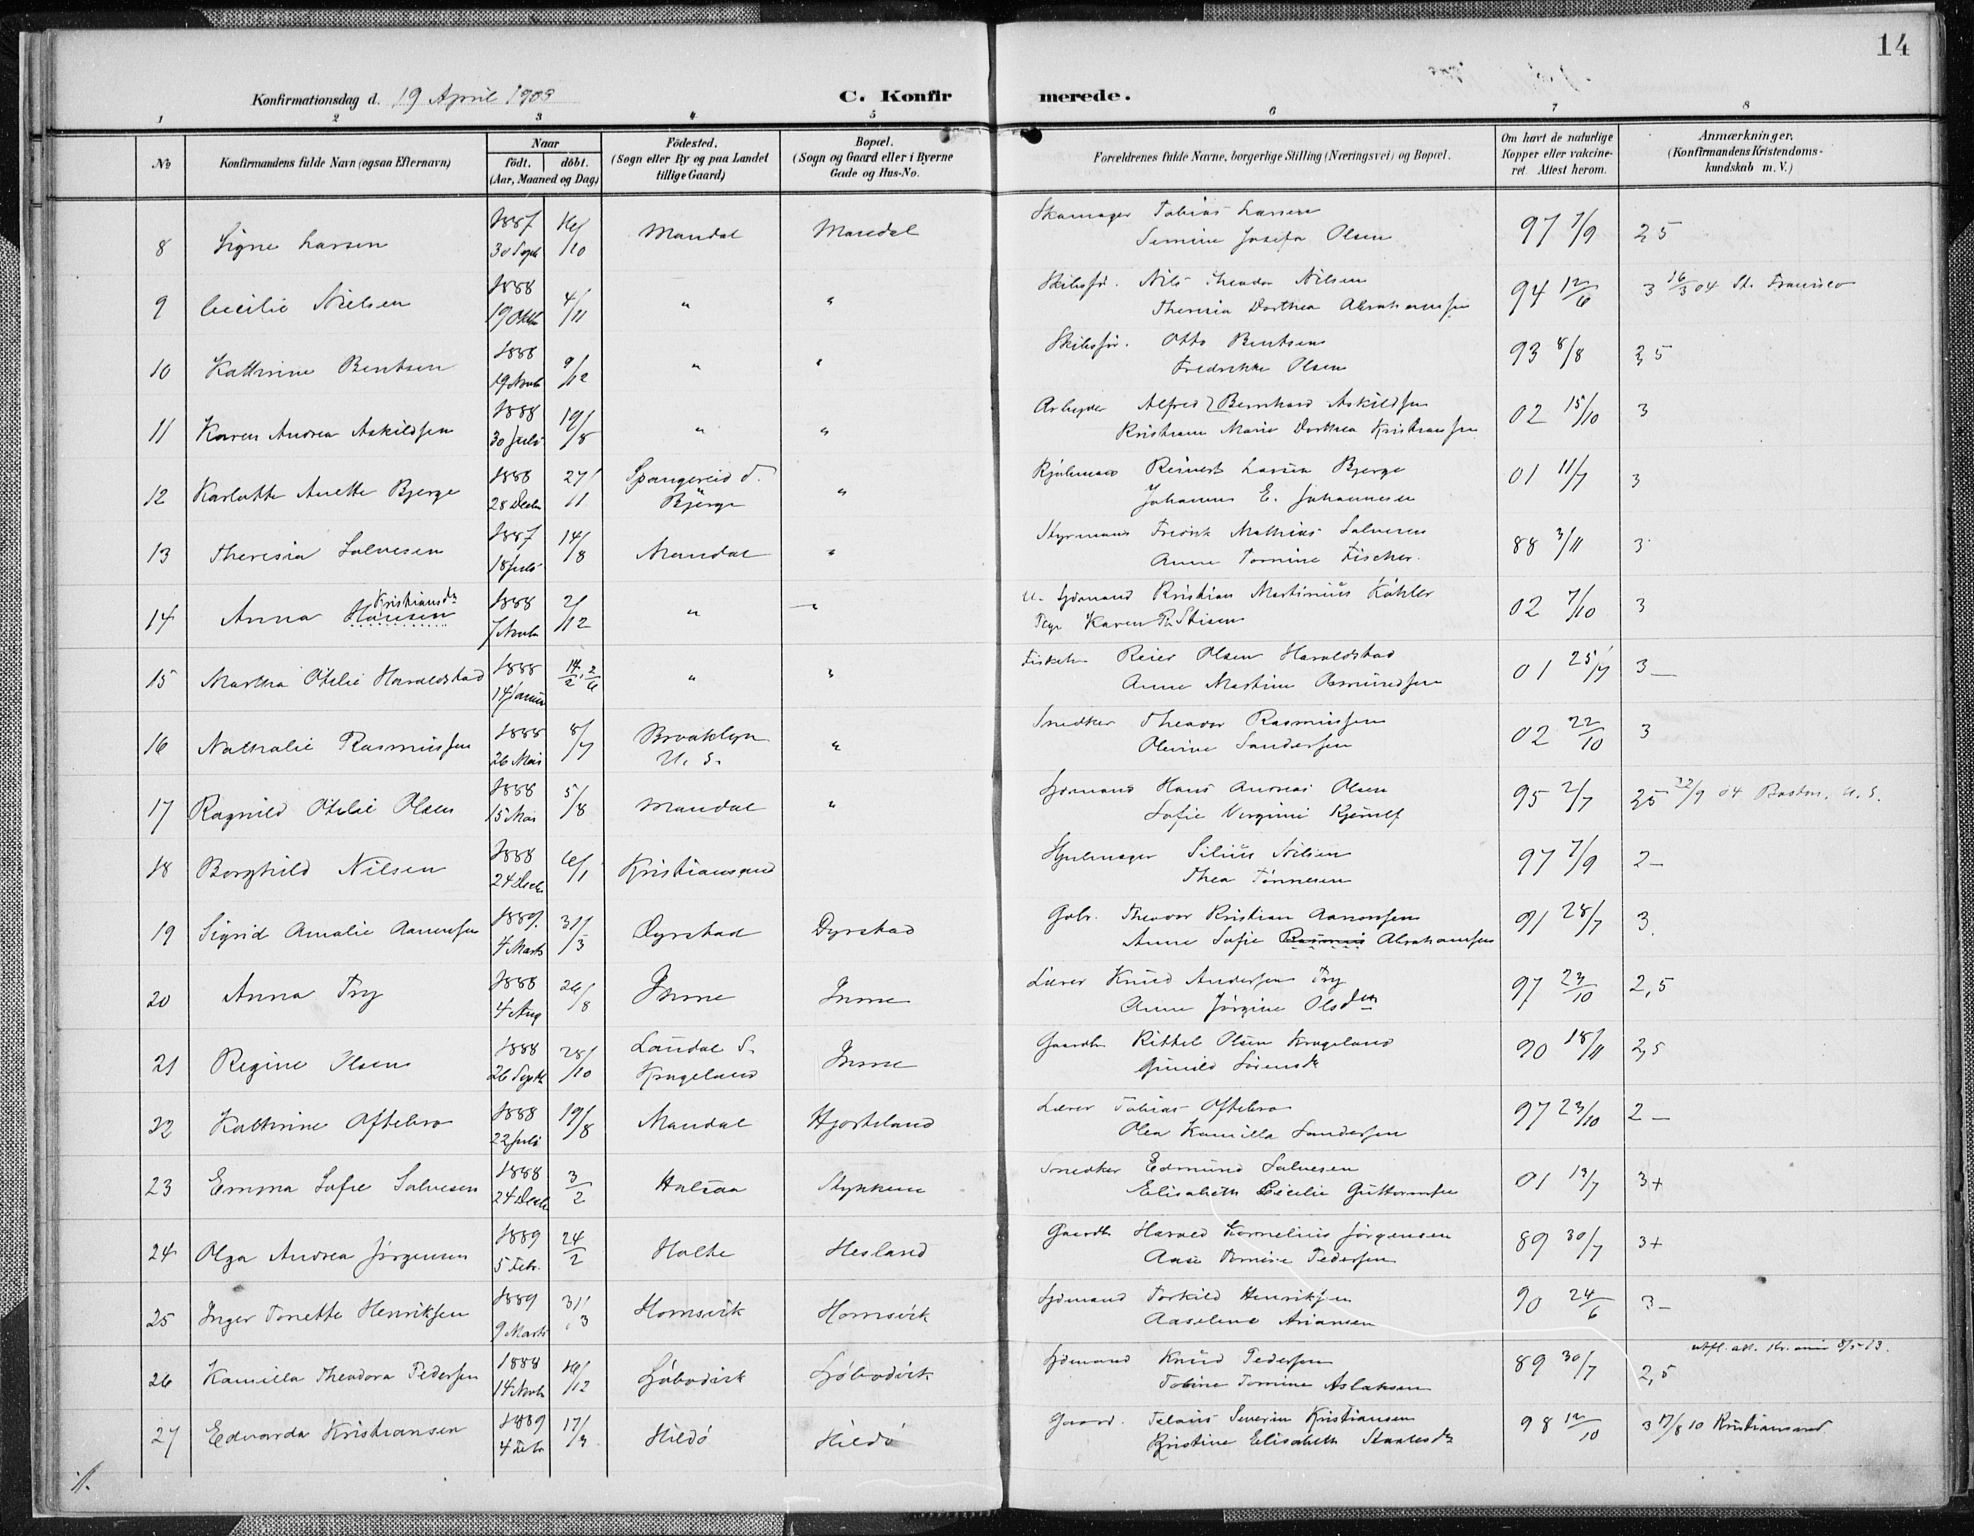 14
Konfirmationsdag d. 19 April 1903
C. Konfir merede.
1 2 3 4 5 6 7 8
No
Konfirmandens fulde Navn (ogsaa Efternavn)
Naar
født. døbt.
(Aar, Maaned og Dag)
Fødested.
(Sogn eller By og paa Landet
tillige Gaard)
Bopæl.
(Sogn og Gaard eller i Byerne
Gade og Hus-No.
Forældrenes fulde Navne, borgerlige Stilling (Næringsvei) og Bopæl.
Om havt de naturlige
Kopper eller vakcine-
ret. Attest herom.
Anmærkninger.
(Konfirmandens Kristendoms-
kundskab m. V.)
8 Signe Larsen 1887 30 Sept 16/10 Mandal Mandal Skomager Tobias Larsen
Semine Josefa Olsen 97 7/9 2,5
9 Cecilie Nielsen 1888 19 Oktb 4/11 " " Skibsfør. Nils Theodor Nilsen
Theresia Dorthea Abrahamsen 94 12/6 3 16/3 04 St. Francisco
10 Kathrine Bentsen 1888 19 Novb 9/12 " " Skibsfør. Otto Bentsen
Fredrikke Olsen 93 8/8 2,5
11 Karen Andrea Askildsen 1888 30 Juli 19/8 " " Arbeyder Alfred Bernhard Askildsen
Kristiane Marie Dorthea Kristiansen 02 15/10 3
12 Karlotte Anette Bjerge 1888 28 Decbr 27/1 Spangereid d.
Bjerge " Reinert Larsen Bjerge
Johanne E. Johannesen 01 11/7 3
13 Theresia Salvesen 1887 18 Juli 14/8 Mandal " Styrmand Fredrik Mathias Salvesen
Anne Tomine Fischer. 88 3/11 3
14 Anna Hansen Kristiansdr 1888 7 Novb 2/12 " " U. Sjømand Kristian Martinius Köhler
Pige Karen R. Stisen 02 7/10 3
15 Martha Otelie Haraldstad 1888 14 Januar 14/2 2/6 " " Fisker Reier Olsen Haraldstad
Anne Martine Asmundsen 01 25/7 3 —
16 Nathalie Rasmussen 1888 26 Mai 8/7 Brooklyn
U. S. " Snedker Theodor Rasmussen
Olevine Sandersen 02 22/10 3
17 Ragnild Otelie Olsen 1888 15 Mai 5/8 Mandal " Sjømand Hans Andreas Olsen
Sofie Virginie Kjerulf 95 2/7 2,5 22/9 04 Boston, U. S.
18 Borghild Nilsen 1888 24 Decbr 6/1 Kristiansand Hjulmager Silius Nilsen
Thea Tønnesen 97 7/9 2 –
19 Sigrid Amalie Aanensen 1889 4 Marts 31/3 Dyrstad Dyrstad Gbr. Theodor Kristian Aanonsen
Anne Sofie Rasmus Abrahamsen 91 28/7 3.
20 Anna Try 1888 4 Aug 26/8 Imme Imme Lærer Knud Andersen Try
Anne Jørgine Olsdtr 97 23/10 2,5
21 Regine Olsen 1888 26 Septb 28/10 Laudal S.
Krageland Imme Gaardb Kittel Olsen Krageland
Gunild Sørensdr 90 18/11 2,5
22 Kathrine Oftebro 1888 22 Juli 19/8 Mandal Hjorteland Lærer Tobias Oftebro
Olea Kamilla Sandersen 97 23/10 2 –
23 Emma Sofie Salvesen 1888 24 Decbr 3/2 Halsaa Stykkene Snedker Edmund Salvesen
Elisabeth Cecilie Guttormsen 01 13/7 3+
24 Olga Andrea Jørgensen 1889 5 Febr. 24/2 Holte Hesland Gaardb Harald Kornelius Jørgensen
Aase Tomine Pedersen 89 30/7 3+
25 Inger Tonette Henriksen 1889 9 Marts 31/3 Homsvik Homsvik Sjømand Torkild Henriksen
Aaselene Ariansen 90 24/6 3 –
26 Kamilla Theodora Pedersen 1888 14 Novb 16/12 Sjøbodvik Sjøbodvik Sjømand Knud Pedersen
Tobine Tomine Aslaksen 89 30/7 2,5 utfl. att. 8/5 13.
27 Edvarda Kristiansen 1889 4 Feb 17/3 Hildø Hildø Gaard. Telaus Severin Kristiansen
Kristine Elisabeth Staalesdr 98 12/10 3 17/8 10 Kristiansand